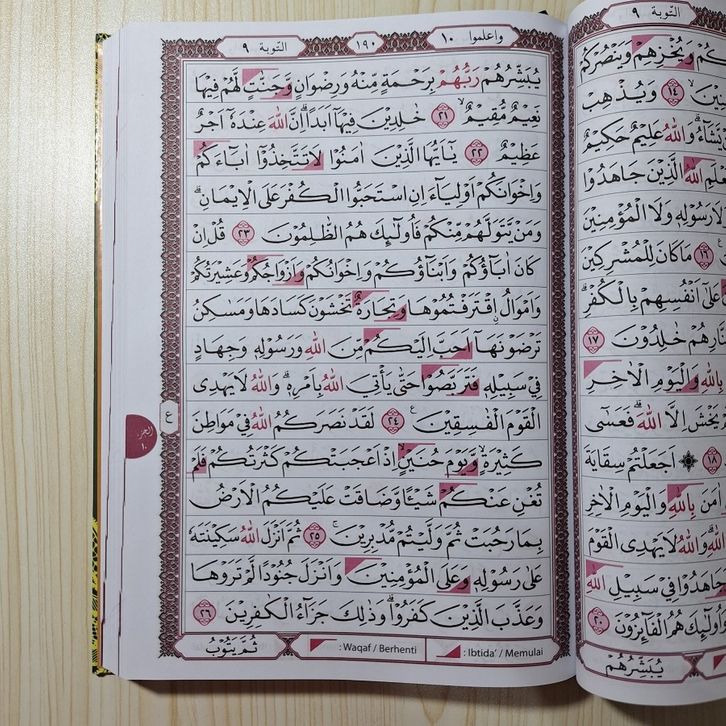 التوبة ٩
١٩٠
واعلموا ١٠
يُبَشِّرُهُمْ رَبُّهُمْ بِرَحْمَةٍ مِّنْهُ وَرِضْوَانٍ وَّجَنّٰتٍ لَّهُمْ فِيْهَا
نَعِيْمٌ مُّقِيْمٌۙ ٢١ خٰلِدِيْنَ فِيْهَآ اَبَدًاۗ اِنَّ اللّٰهَ عِنْدَهٗٓ اَجْرٌ
عَظِيْمٌ ٢٢ يٰٓاَيُّهَا الَّذِيْنَ اٰمَنُوْا لَا تَتَّخِذُوْٓا اٰبَاۤءَكُمْ
وَاِخْوَانَكُمْ اَوْلِيَاۤءَ اِنِ اسْتَحَبُّوا الْكُفْرَ عَلَى الْاِيْمَانِۗ
وَمَنْ يَّتَوَلَّهُمْ مِّنْكُمْ فَاُولٰۤىِٕكَ هُمُ الظّٰلِمُوْنَ ٢٣ قُلْ اِنْ
كَانَ اٰبَاۤؤُكُمْ وَاَبْنَاۤؤُكُمْ وَاِخْوَانُكُمْ وَاَزْوَاجُكُمْ وَعَشِيْرَتُكُمْ
وَاَمْوَالُ ࣙاقْتَرَفْتُمُوْهَا وَتِجَارَةٌ تَخْشَوْنَ كَسَادَهَا وَمَسٰكِنُ
تَرْضَوْنَهَآ اَحَبَّ اِلَيْكُمْ مِّنَ اللّٰهِ وَرَسُوْلِهٖ وَجِهَادٍ
فِيْ سَبِيْلِهٖ فَتَرَبَّصُوْا حَتّٰى يَأْتِيَ اللّٰهُ بِاَمْرِهٖۗ وَاللّٰهُ لَا يَهْدِى
الْقَوْمَ الْفٰسِقِيْنَ ࣖ ٢٤ لَقَدْ نَصَرَكُمُ اللّٰهُ فِيْ مَوَاطِنَ
كَثِيْرَةٍۙ وَّيَوْمَ حُنَيْنٍۙ اِذْ اَعْجَبَتْكُمْ كَثْرَتُكُمْ فَلَمْ
تُغْنِ عَنْكُمْ شَيْـًٔا وَّضَاقَتْ عَلَيْكُمُ الْاَرْضُ
بِمَا رَحُبَتْ ثُمَّ وَلَّيْتُمْ مُّدْبِرِيْنَۚ ٢٥ ثُمَّ اَنْزَلَ اللّٰهُ سَكِيْنَتَهٗ
عَلٰى رَسُوْلِهٖ وَعَلَى الْمُؤْمِنِيْنَ وَاَنْزَلَ جُنُوْدًا لَّمْ تَرَوْهَا
وَعَذَّبَ الَّذِيْنَ كَفَرُوْاۗ وَذٰلِكَ جَزَاۤءُ الْكٰفِرِيْنَ ٢٦
ثُمَّ يَتُوْبُ
: Waqaf / Berhenti
: Ibtida' / Memulai
ع
الجزء
١٠
التوبة ٩
وَيُخْزِهِمْ وَيَنْصُرْكُمْ
١٤ وَيُذْهِبْ
وَاللّٰهُ عَلِيْمٌ حَكِيْمٌ
اللّٰهُ الَّذِيْنَ جَاهَدُوْا
رَسُوْلِهٖ وَلَا الْمُؤْمِنِيْنَ
١٦ مَا كَانَ لِلْمُشْرِكِيْنَ
عَلٰٓى اَنْفُسِهِمْ بِالْكُفْرِۗ
هُمْ خٰلِدُوْنَ ١٧
بِاللّٰهِ وَالْيَوْمِ الْاٰخِرِ
يَخْشَ اِلَّا اللّٰهَ ۗفَعَسٰٓى
١٨ ۞ اَجَعَلْتُمْ سِقَايَةَ
اٰمَنَ بِاللّٰهِ وَالْيَوْمِ الْاٰخِرِ
وَاللّٰهُ لَا يَهْدِى الْقَوْمَ
فِيْ سَبِيْلِ اللّٰهِ
وَاُولٰۤىِٕكَ هُمُ الْفَاۤىِٕزُوْنَ ٢٠
يُبَشِّرُهُمْ